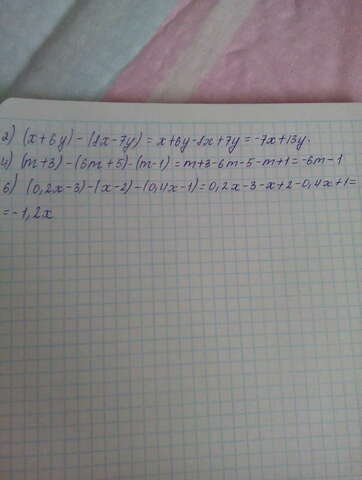 2) (x+6y)-(8x-7y)=x+6y-8x+7y=-7x+13y.
4) (m+3)-(6m+5)-(m-1)=m+3-6m-5-m+1=-6m-1
6) (0,2x-3)-(x-2)-(0,4x-1)=0,2x-3-x+2-0,4x+1=
=-1,2x